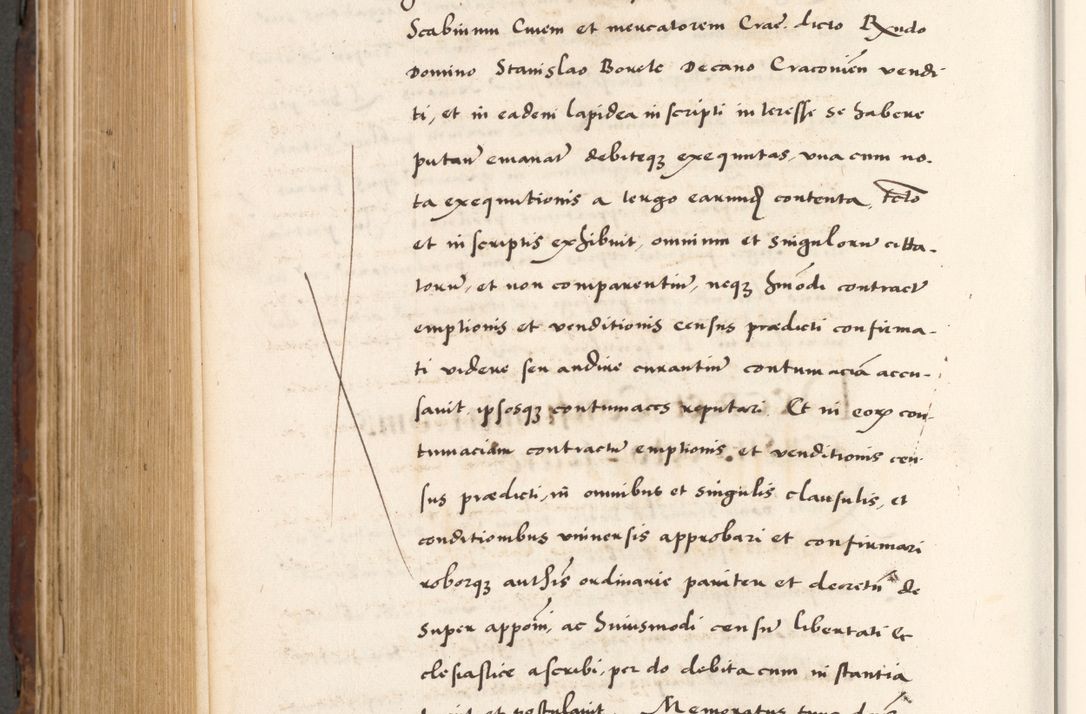 Scabinum Civem et mercatorem Crae. dicto Rndo
Domino Stanislao Borele Decano Craconien vendi
ti, et in eadem lapidea inscripti interesse se habere
putan emanat debiteqz exequutas, una cum no-
ta exequutionis a tergo earund contenta,
et in scriptis exhibuit, omnium et singuloru citta-
toru, et non comparentiu, neqz hmodi contractu
emptionis et venditionis census praedicti confirma-
ti videre seu audire curantiu contumaciā accu-
savit, ipsosqz contumaces reputari Et in eorum con-
tumaciam contractu emptionis et venditionis cen-
sus praedicti, in omnibus et singulis clausulis, et
conditionibus universis approbari et confirmari
roborqz authis ordinarie pariter et decretū de
super apponi, ac huiusmodi censu libertati Ec
clesiastice ascribi, per do debita cum instantia
et postulavit. Memoratus tunc